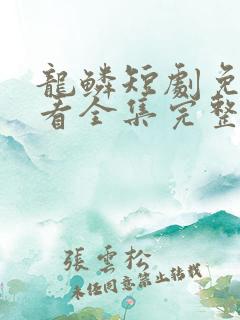 龍鱗短劇免
看全集完整
張雲松
未任同意禁止转载